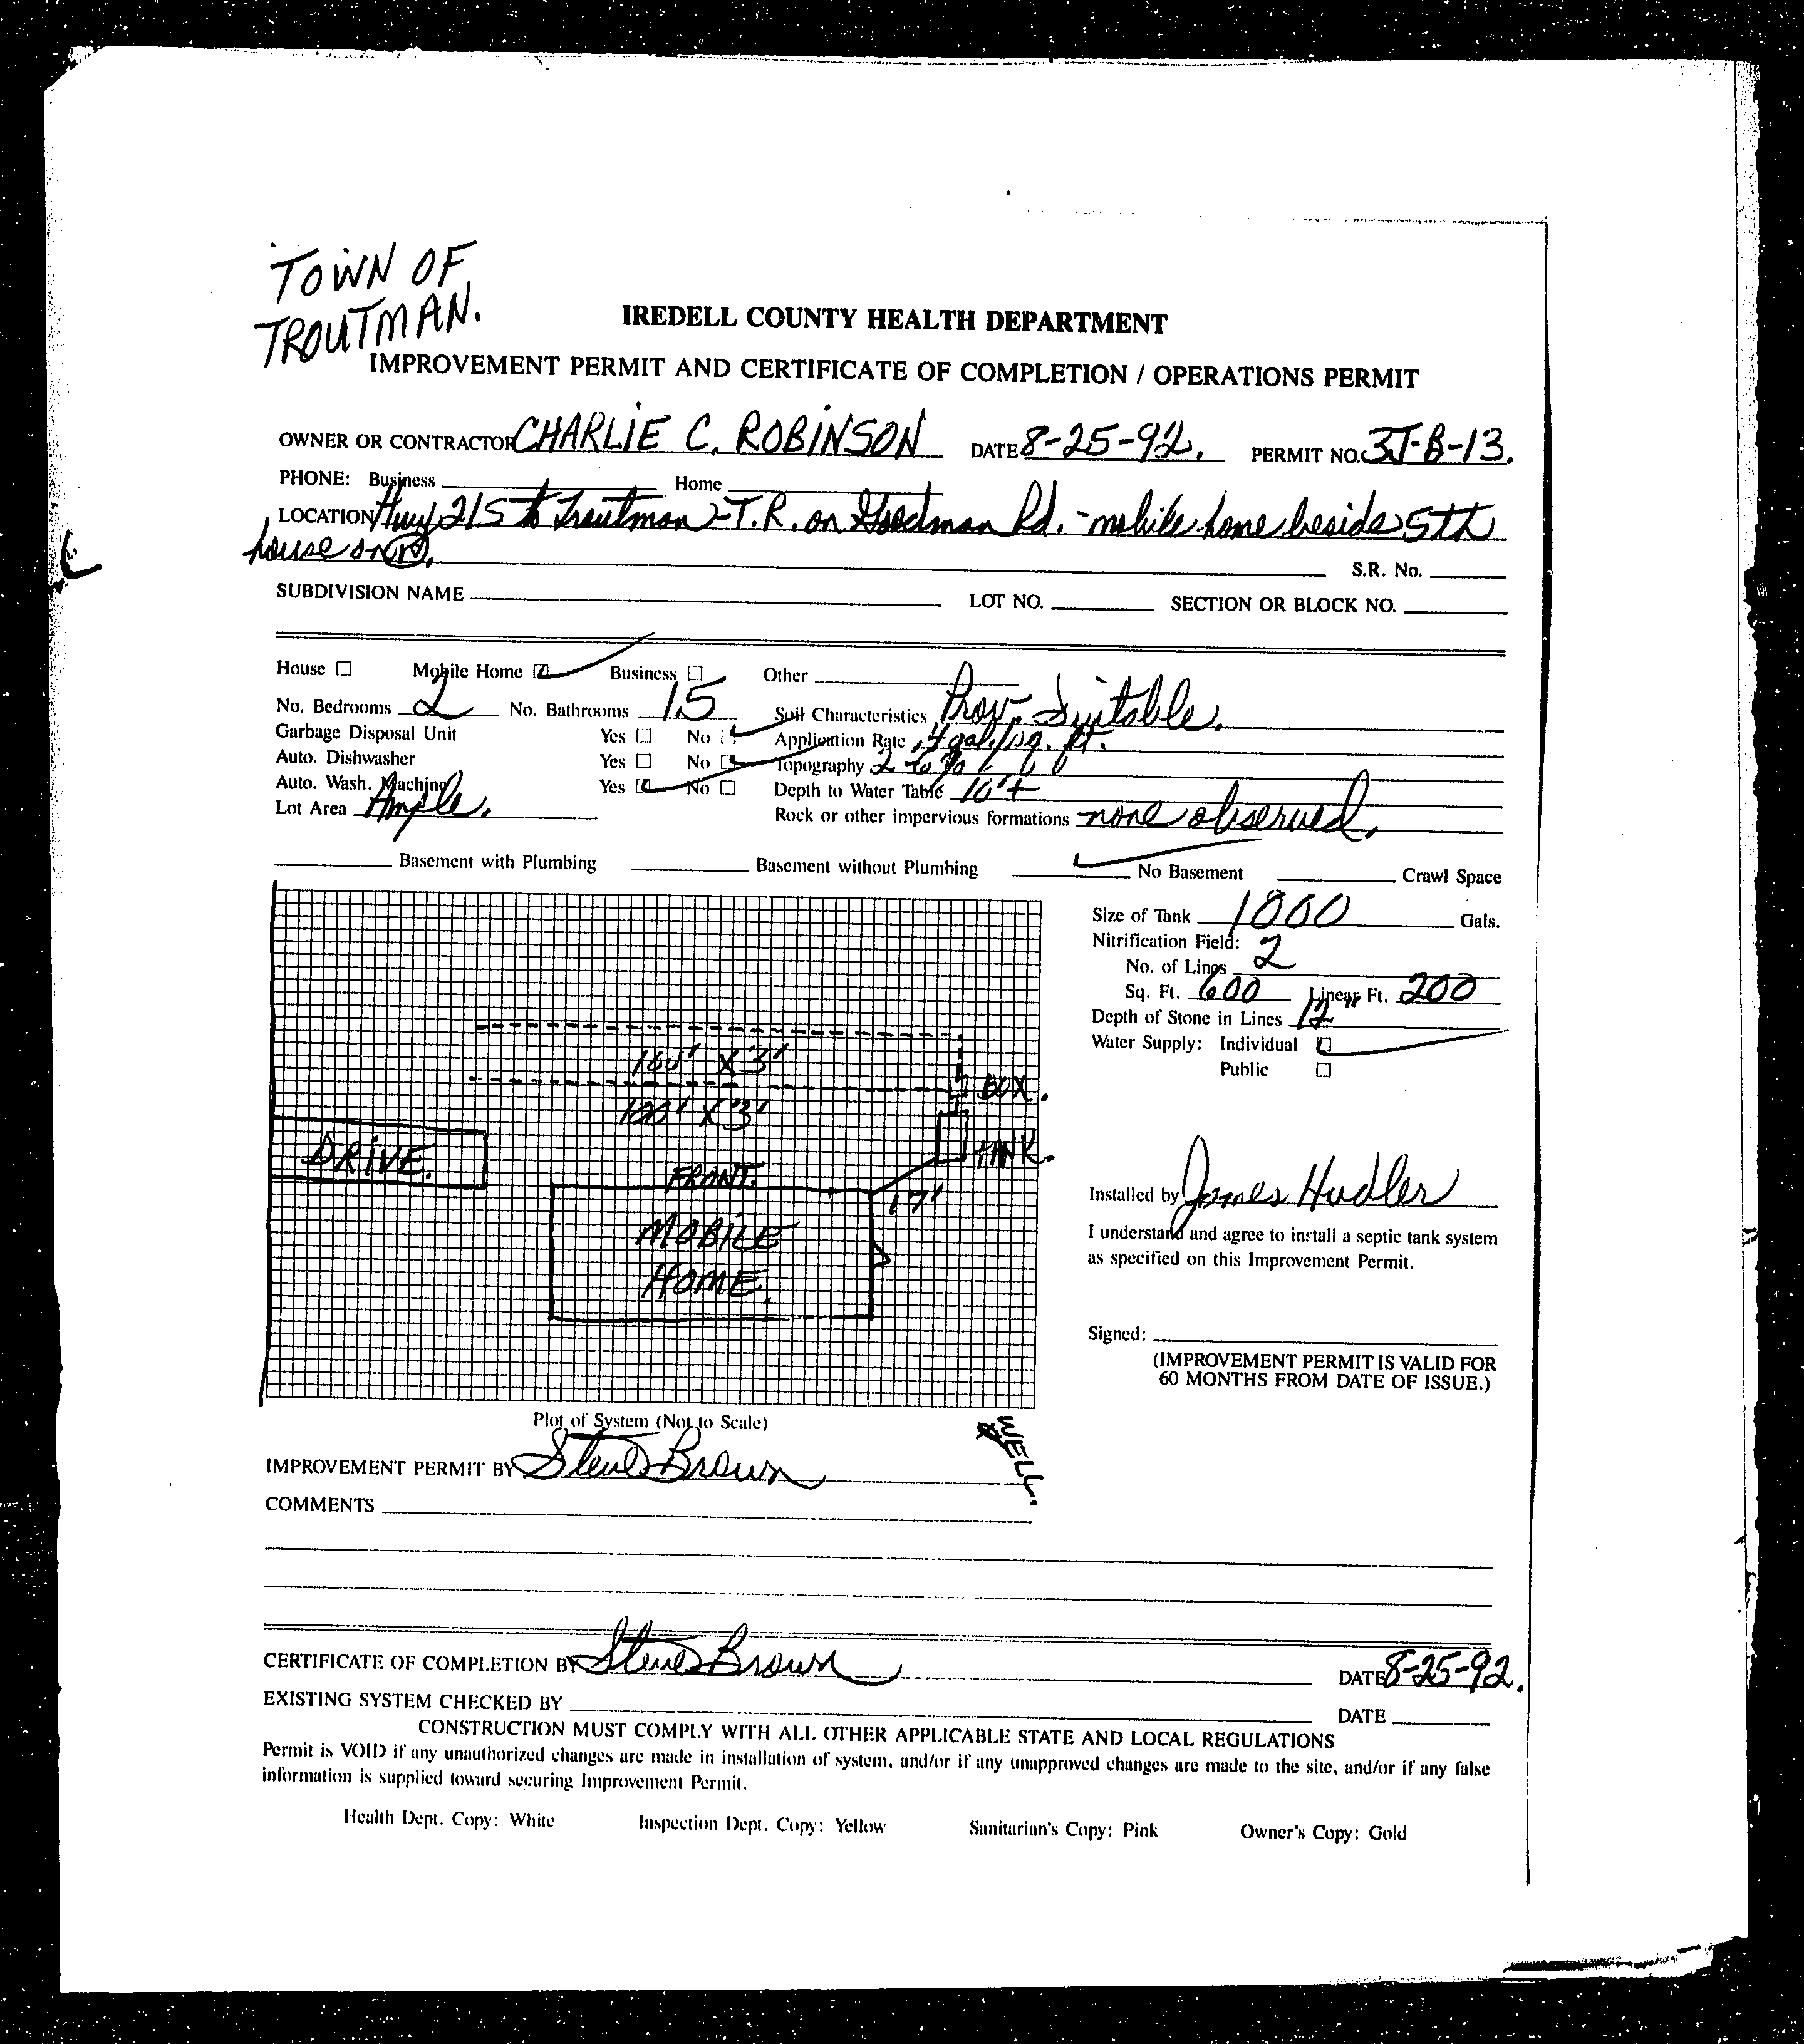 TOWN OF
TROUTMAN.
IREDELL COUNTY HEALTH DEPARTMENT
IMPROVEMENT PERMIT AND CERTIFICATE OF COMPLETION / OPERATIONS PERMIT
OWNER OR CONTRACTOR CHARLIE C. ROBINSON DATE 8-25-92. PERMIT NO. 3J-B-13.
PHONE: Business Home
LOCATION Hwy 21S to Troutman - T.R. on Goodman Rd. - mobile home beside 5th
house on R.
S.R. No.
SUBDIVISION NAME LOT NO. SECTION OR BLOCK NO.
House Mobile Home Business Other
No. Bedrooms 2 No. Bathrooms 1.5 Soil Characteristics Prov. Suitable.
Garbage Disposal Unit Yes No Application Rate .4 gal./sq. ft.
Auto. Dishwasher Yes No Topography 2 to %
Auto. Wash. Machine Yes No Depth to Water Table 10'+
Lot Area Ample. Rock or other impervious formations none observed.
Basement with Plumbing Basement without Plumbing No Basement Crawl Space
Size of Tank 1000 Gals.
Nitrification Field:
No. of Lines 2
Sq. Ft. 600 Linear Ft. 200
Depth of Stone in Lines 12"
Water Supply: Individual
Public
100' X 3'
BOX.
100' X 3'
TANK.
DRIVE.
FRONT.
17'
MOBILE
HOME.
Installed by James Hudler
I understand and agree to install a septic tank system
as specified on this Improvement Permit.
Signed:
(IMPROVEMENT PERMIT IS VALID FOR
60 MONTHS FROM DATE OF ISSUE.)
Plot of System (Not to Scale)
WELL.
IMPROVEMENT PERMIT BY Steve Brown
COMMENTS
CERTIFICATE OF COMPLETION BY Steve Brown DATE 8-25-92.
EXISTING SYSTEM CHECKED BY DATE
CONSTRUCTION MUST COMPLY WITH ALL OTHER APPLICABLE STATE AND LOCAL REGULATIONS
Permit is VOID if any unauthorized changes are made in installation of system, and/or if any unapproved changes are made to the site, and/or if any false
information is supplied toward securing Improvement Permit.
Health Dept. Copy: White Inspection Dept. Copy: Yellow Sanitarian's Copy: Pink Owner's Copy: Gold